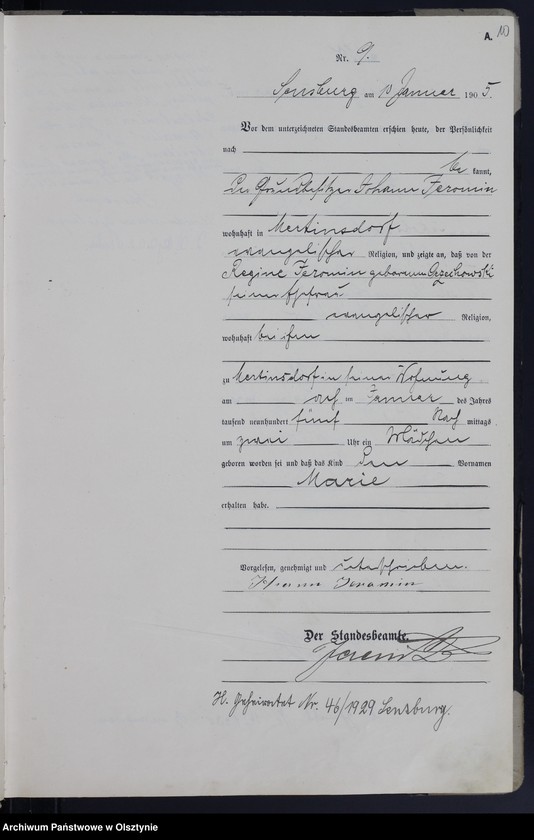 A. 10
Nr. 9.
Sensburg am 13 Januar 1905.
Vor dem unterzeichneten Standesbeamten erschien heute, der Persönlichkeit
nach
be kannt,
der Grundbesitzer Johann Jeromin
wohnhaft in Mertinsdorf
evangelischer Religion, und zeigte an, daß von der
Regine Jeromin geborenen Grzechowski
seiner Ehefrau
evangelischer Religion,
wohnhaft bei ihm
zu Mertinsdorf in seiner Wohnung
am acht im Januar des Jahres
tausend neunhundert fünf Nach mittags
um zwei Uhr ein Mädchen
geboren worden sei und daß das Kind den Vornamen
Marie
erhalten habe.
Vorgelesen, genehmigt und unterschrieben.
Johann Jeromin
Der Standesbeamte.
H. Geheiratet Nr. 46/1929 Sensburg.
Archiwum Państwowe w Olsztynie